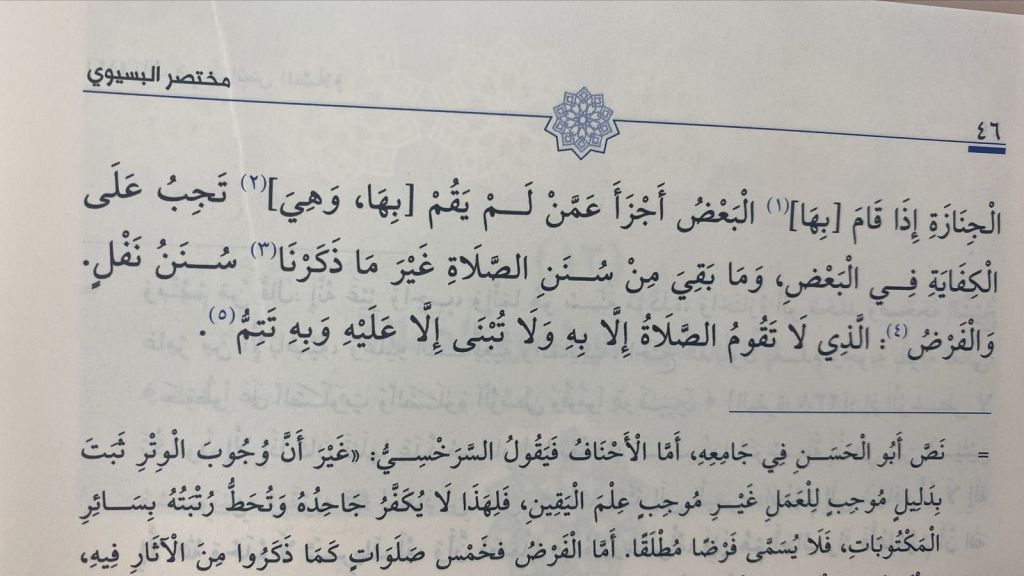 مختصر البسيوي
٤٦
الْجِنَازَةِ إِذَا قَامَ [بِهَا](١) الْبَعْضُ أَجْزَأَ عَمَّنْ لَـمْ يَقُمْ [بِهَا، وَهِيَ](٢) تَجِبُ عَلَى
الْكِفَايَةِ فِي الْبَعْضِ، وَمَا بَقِيَ مِنْ سُنَنِ الصَّلَاةِ غَيْرَ مَا ذَكَرْنَا(٣) سُنَنُ نَفْلٍ.
وَالْفَرْضُ(٤): الَّذِي لَا تَقُومُ الصَّلَاةُ إِلَّا بِهِ وَلَا تُبْنَى إِلَّا عَلَيْهِ وَبِهِ تَتِمُّ(٥).
= نَصَّ أَبُو الْحَسَنِ فِي جَامِعِهِ، أَمَّا الْأَحْنَافُ فَيَقُولُ السَّرَخْسِيُّ: «غَيْرَ أَنَّ وُجُوبَ الْوِتْرِ ثَبَتَ
بِدَلِيلٍ مُوجِبٍ لِلْعَمَلِ غَيْرِ مُوجِبٍ عِلْمَ الْيَقِينِ، فَلِهَذَا لَا يُكَفَّرُ جَاحِدُهُ وَتُحَطُّ رُتْبَتُهُ بِسَائِرِ
الْمَكْتُوبَاتِ، فَلَا يُسَمَّى فَرْضًا مُطْلَقًا. أَمَّا الْفَرْضُ فَخَمْسُ صَلَوَاتٍ كَمَا ذَكَرُوا مِنَ الْآثَارِ فِيهِ،